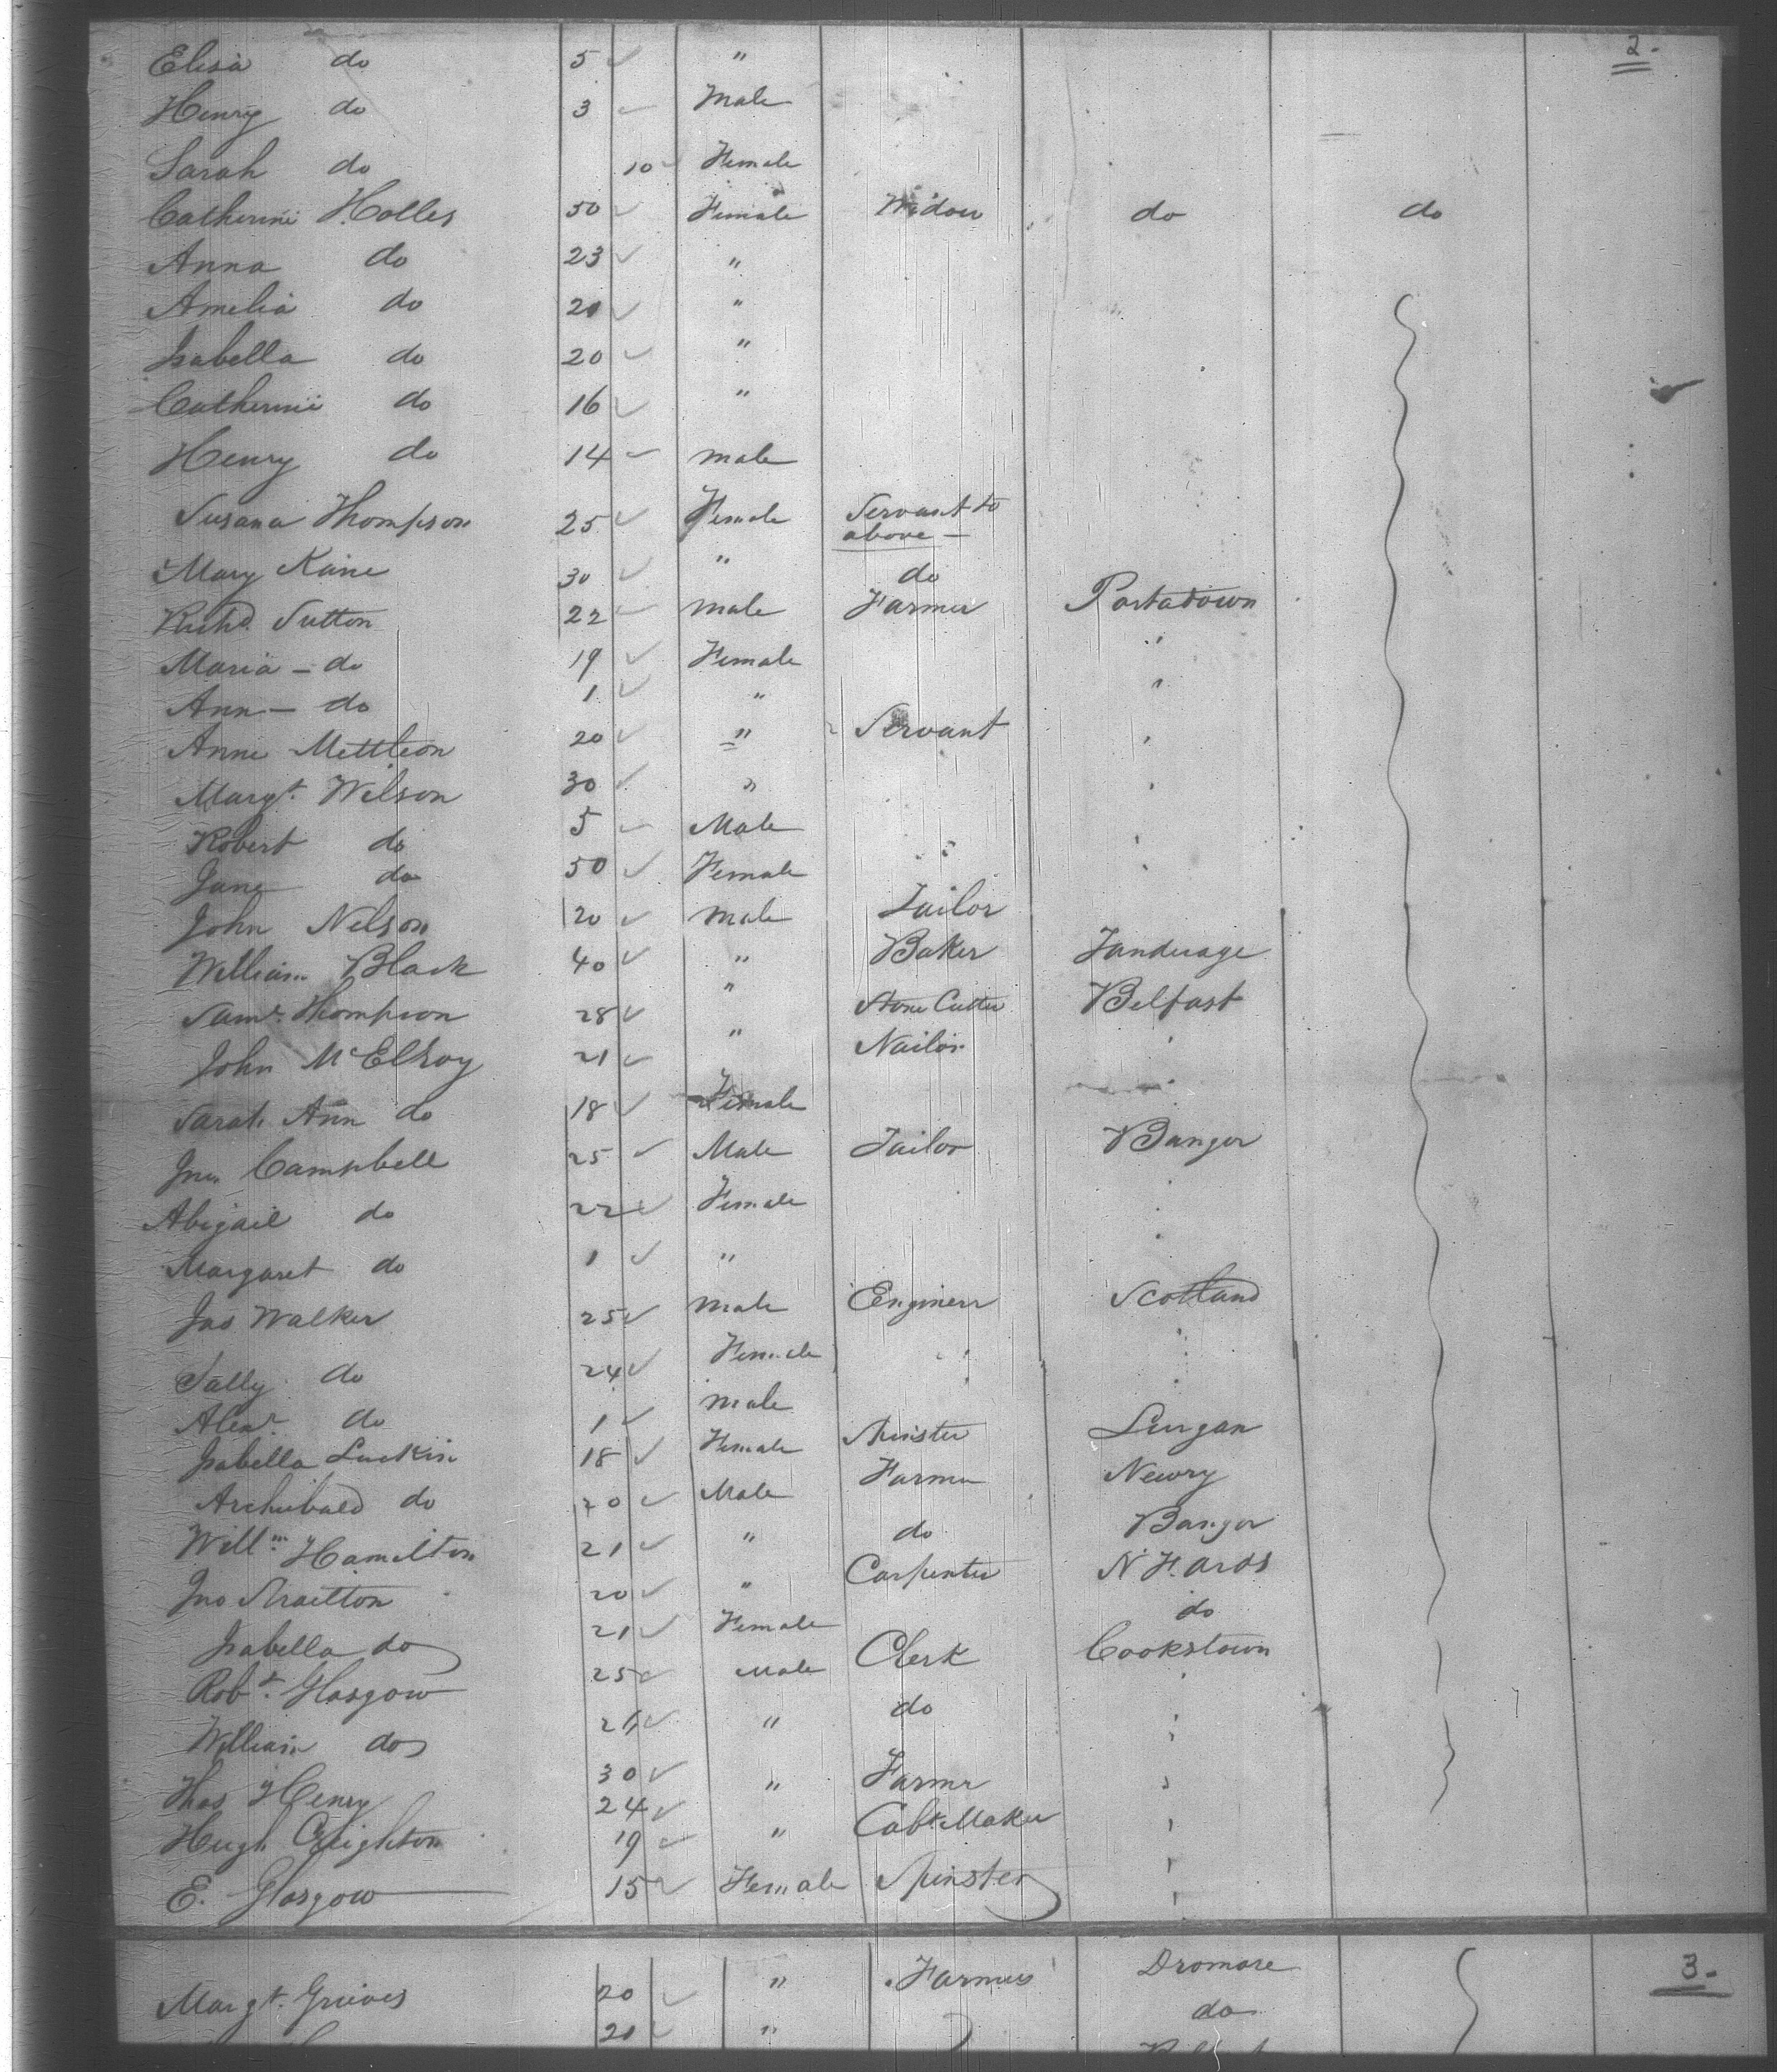 2.
Elisa do 5 "
Henry do 3 Male
Sarah do 10 Female
Catherine Holles 50 Female Widow do do
Anna do 23 "
Amelia do 20 "
Isabella do 20 "
Catherine do 16 "
Henry do 14 male
Susana Thompson 25 Female Servant to
above -
Mary Kane 30 " do
Richd. Sutton 22 male Farmer Portadown
Maria - do 19 Female "
Ann - do 1 " "
Anne 20 " Servant "
Margt. Wilson 30 " "
Robert do 5 Male "
Jane do 50 Female " "
John Nelson 20 male Tailor
William Black 40 " Baker
Saml. Thompson 28 " Stone Cutter Belfast
John McElroy 21 " Nailor "
Sarah Ann do 18 Female "
Jno Campbell 25 Male Tailor Bangor
Abigail do 22 Female "
Margaret do 1 " "
Jas Walker 25 male Engineer Scotland
Sally do 24 Female " "
Alexr. do 1 male "
Isabella Luckin 18 Female Spinster Lurgan
Archibald do 20 Male Farmer Newry
Willm. Hamilton 21 " do Bangor
Jno Straitton 20 " Carpenter N.T. Ards
Isabella do 21 Female do
Robt. Glasgow 25 Male Clerk Cookstown
William do 21 " do "
Thos Henry 30 " Farmer "
Hugh Creighton 24 " Cabt. Maker "
19 "
E. Glasgow 15 Female Spinster "
3.
Margt. Grieves 20 " Farmers Dromore
20 " do